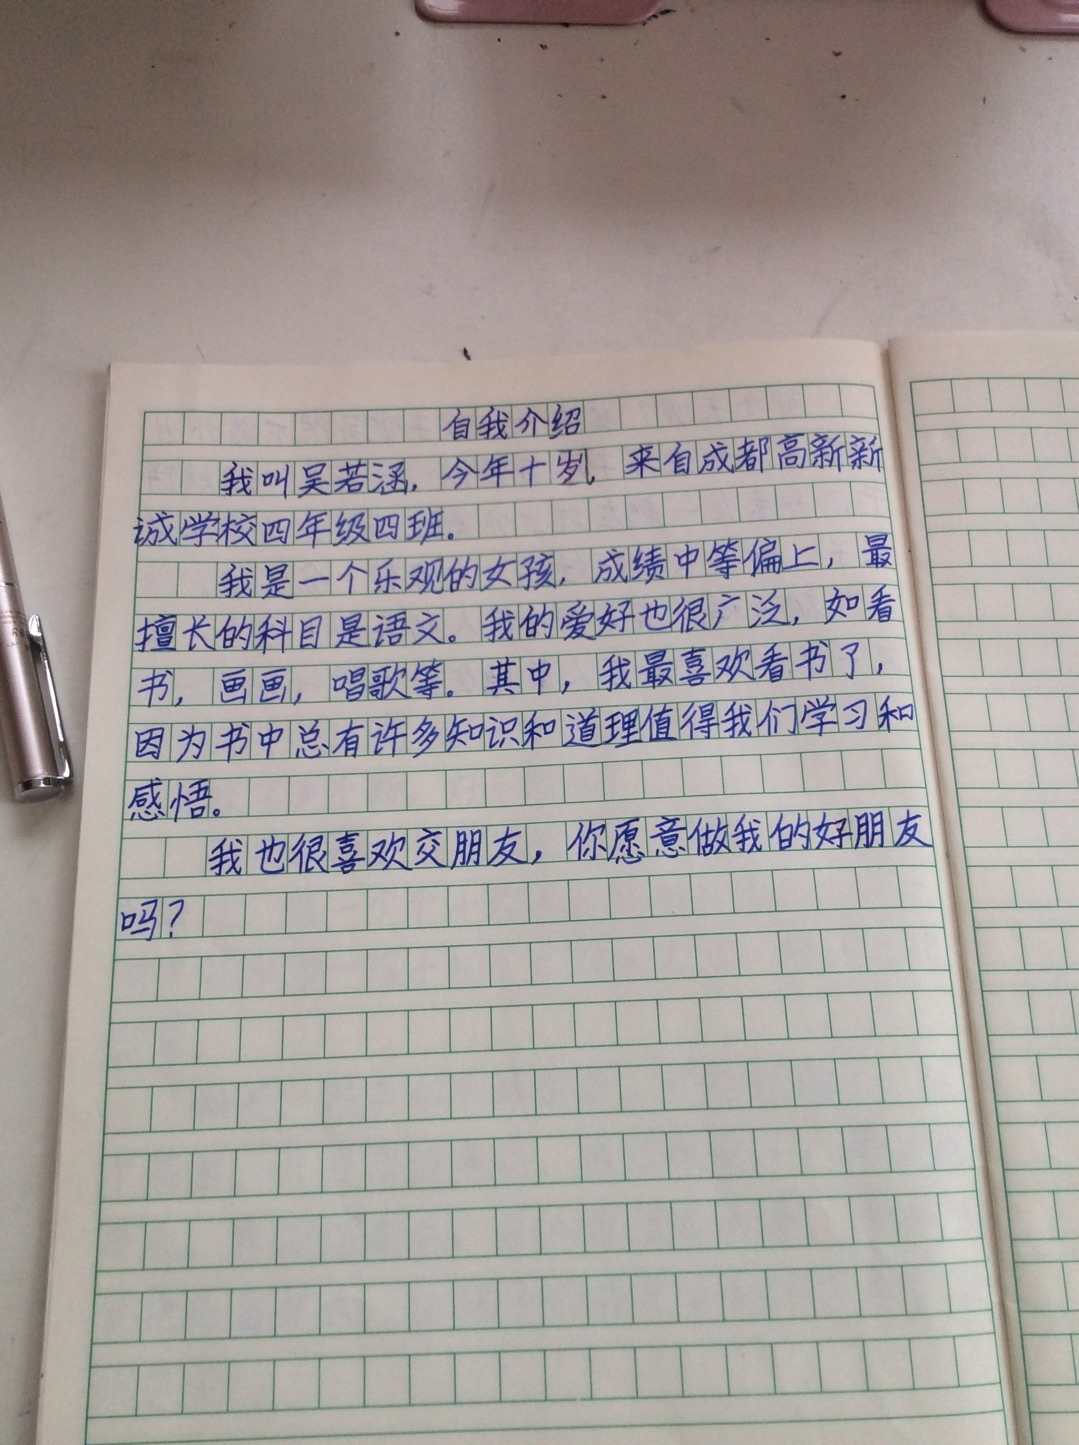 自我介绍
我叫吴若涵，今年十岁，来自成都高新新
诚学校四年级四班。
我是一个乐观的女孩，成绩中等偏上，最
擅长的科目是语文。我的爱好也很广泛，如看
书，画画，唱歌等。其中，我最喜欢看书了，
因为书中总有许多知识和道理值得我们学习和
感悟。
我也很喜欢交朋友，你愿意做我的好朋友
吗？